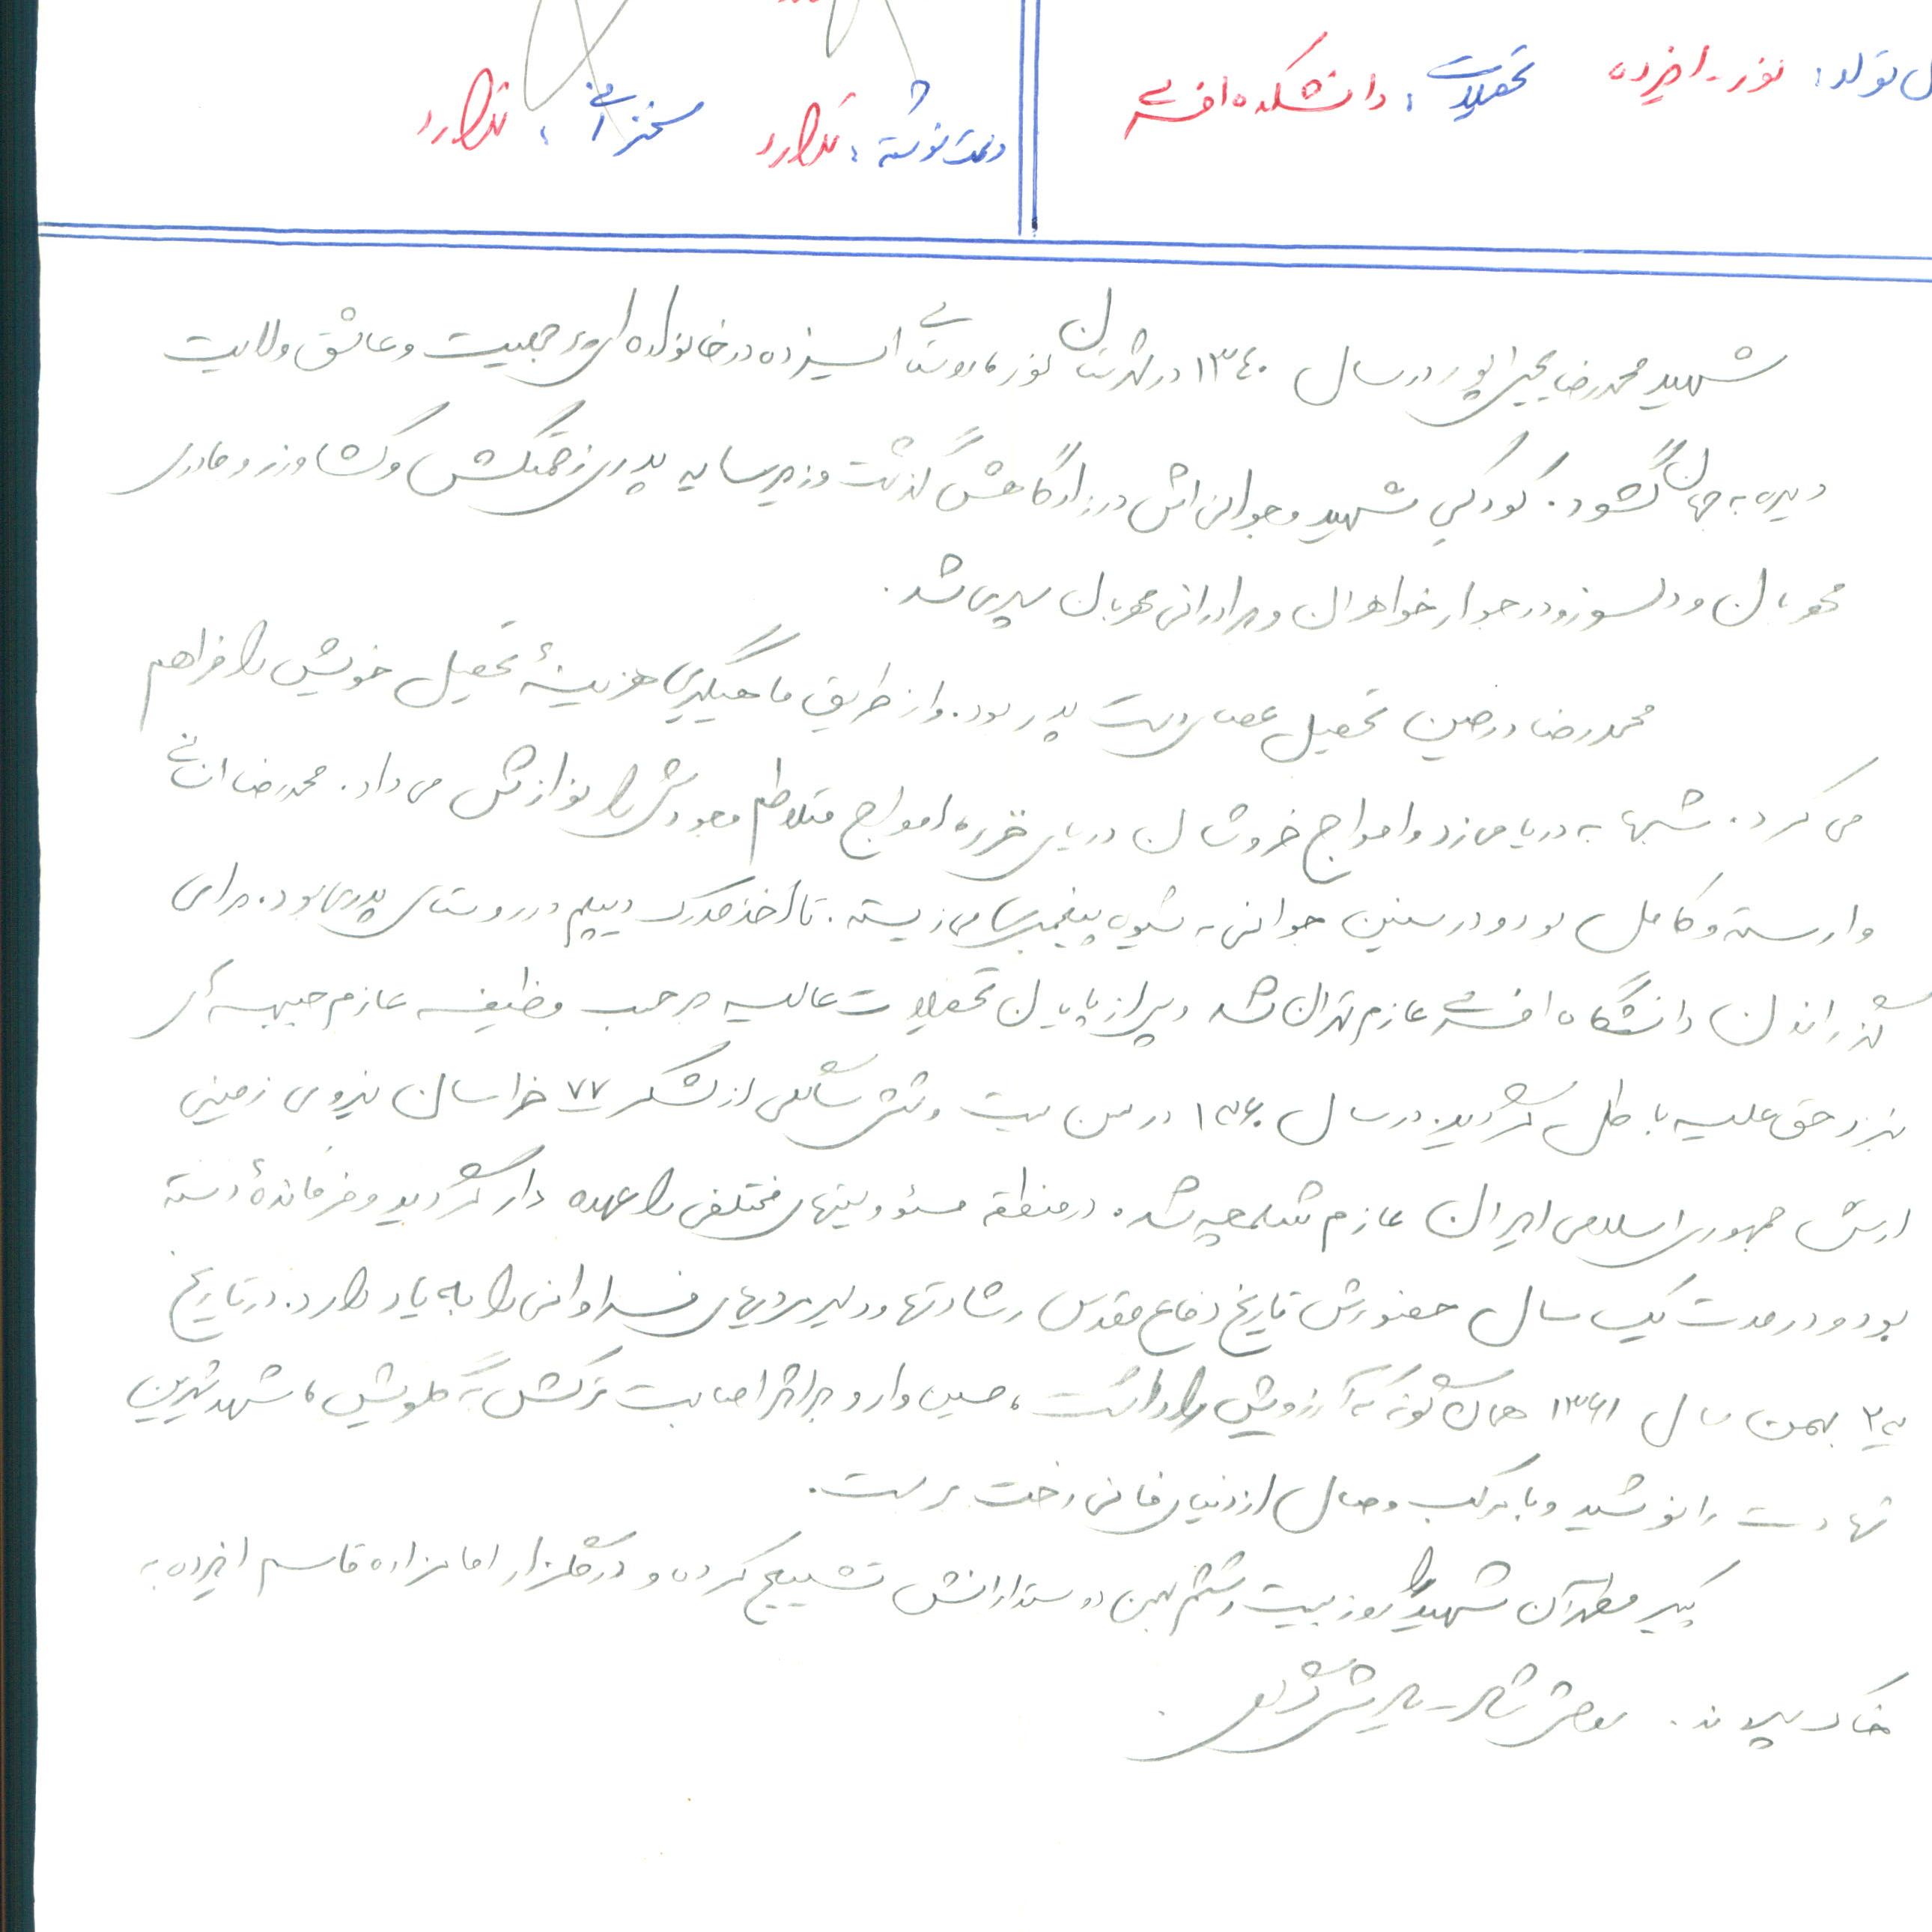 ل تولد: نور-ایزده تحصیلات: دانشکده افسری
دست نوشته: ندارد سخنرانی: ندارد
شهید محمدرضا یحیی پور در سال ۱۳۴۰ در شهرستان نور، روستای ایزده در خانواده ای پرجمعیت و عاشق ولایت
دیده به جهان گشود. کودکی شهید و جوانی اش در زادگاهش گذشت و زیر سایه پدری زحمتکش و کشاورز و مادری
مهربان و دلسوز و در جوار خواهران و برادرانی مهربان سپری شد.
محمدرضا در حین تحصیل عصای دست پدر بود. و از طریق ماهیگیری هزینهٔ تحصیل خویش را فراهم
می کرد. شبها به دریا می زد و امواج خروشان دریای خزر، امواج متلاطم وجودش را نوازش می داد. محمدرضا انسانی
وارسته و کامل بود و در سنین جوانی به شیوه پیغمبری می زیسته. تا اخذ مدرک دیپلم در روستای پدری بود. برای
گذراندن دانشگاه افسری عازم تهران شد و پس از پایان تحصیلات عالیه بر حسب وظیفه عازم جبهه ی
نبرد حق علیه باطل گردید. در سال ۱۳۶۰ در سن بیست و شش سالگی از لشکر ۷۷ خراسان نیروی زمینی
ارتش جمهوری اسلامی ایران عازم شلمچه شد. در منطقه مسئولیتهای مختلفی را عهده دار گردید و فرماندهٔ دسته
بود و در مدت یک سال حضورش تاریخ دفاع مقدس رشادتها و دلیرمردیهای فراوانی را به یاد دارد. در تاریخ
بهمن سال ۱۳۶۱ همان گونه که آرزویش را داشت، حسین وار و بر اثر اصابت ترکش به گلویش، شهد شیرین
شهادت را نوشید و با مرکب وصال از دنیای فانی رخت بربست.
پیکر مطهر آن شهید را روز بیست و ششم بهمن دوستدارانش تشییع کرده و در گلزار امامزاده قاسم ایزده به
خاک سپردند. گرامی